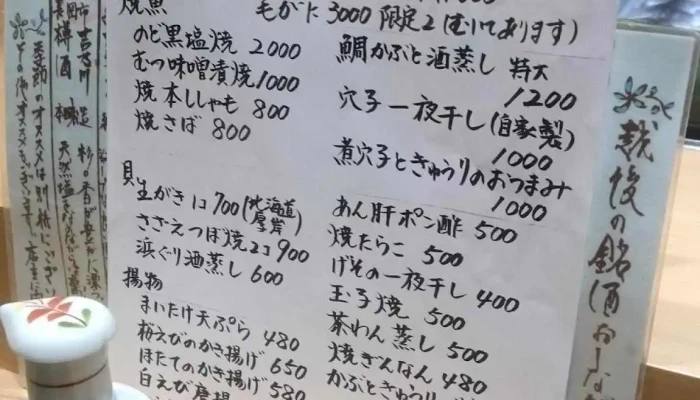 焼魚
のど黒塩焼 2000
むつ味噌漬焼 1000
焼本ししゃも 800
焼さば 800
貝
生がき1コ 700 (北海道厚岸)
さざえつぼ焼2コ 900
浜ぐり酒蒸し 600
揚物
まいたけ天ぷら 480
桜えびのかき揚げ 650
ほたてのかき揚げ 580
白えび唐揚
毛がに 3000 限定2 (むいてあります)
鯛かぶと酒蒸し 特大
1200
穴子一夜干し(自家製)
1000
煮穴子ときゅうりのおつまみ
1000
あん肝ポン酢 500
焼たらこ 500
げその一夜干し 400
玉子焼 500
茶わん蒸し 500
焼ぎんなん 480
かぶときゅうり
越後の銘酒
季節のオススメは別紙にございます